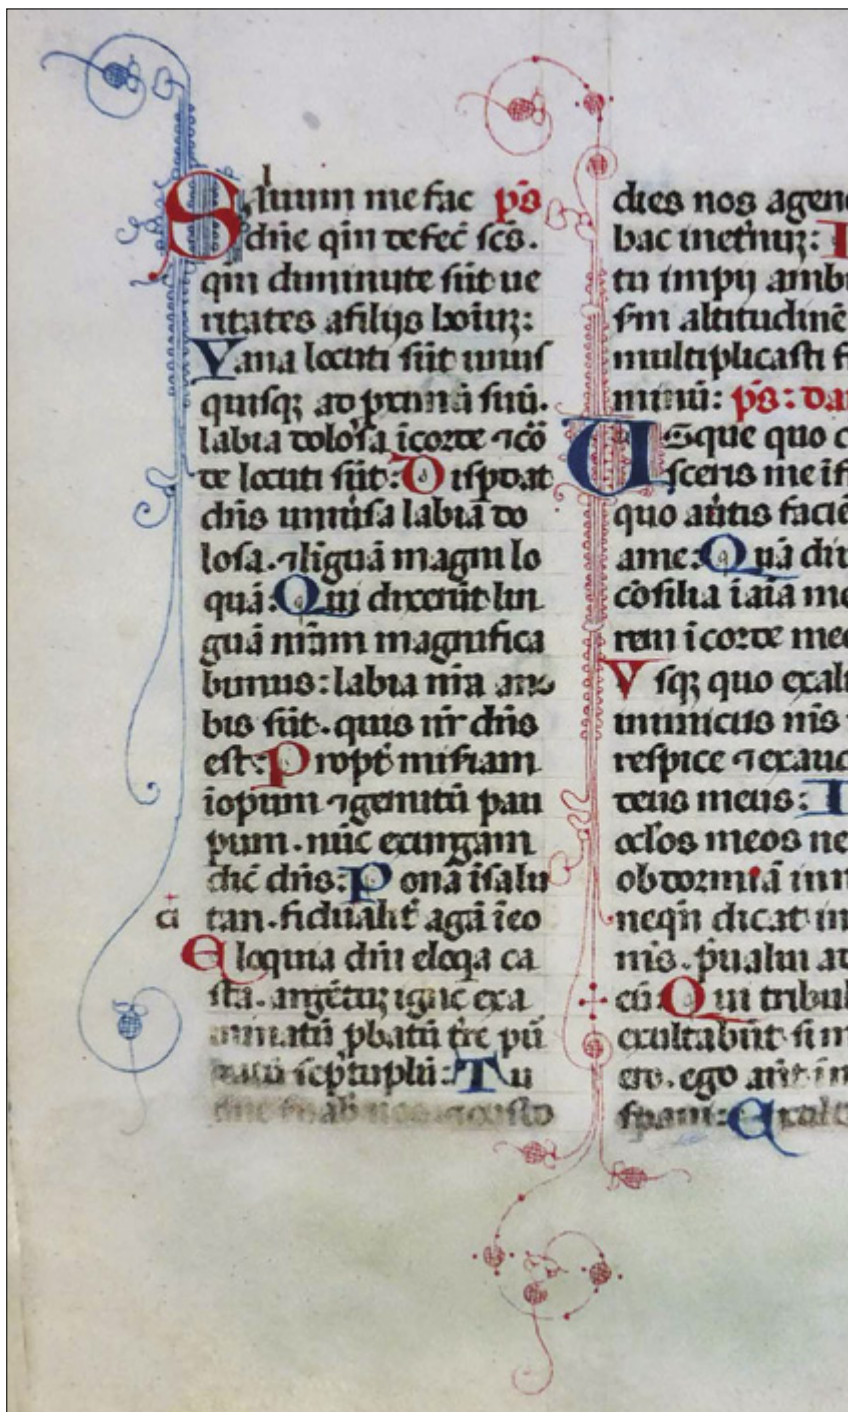 Saluum me fac ps̄
dn̄e qm̄ defec̄ sc̄s.
qm̄ diminute sūt ue
ritates afilijs hoīuꝫ:
Vana locuti sūt unus
quisqꝫ ad proximū suū.
labia dolosa īcorde ⁊cō
de locuti sūt: Dispdat
dn̄s uniūsa labia do
losa. ⁊liguā magni lo
quā: Qui dixerūt lin
guā nr̄am magnifica
bimus: labia nr̄a ano
bis sūt. quis nr̄ dn̄s
est: Propt̄ misr̄iam
īopum ⁊gemitū pau
pum. nūc exurgam
dic̄ dn̄s: Ponā īsalu
tari. fidualit̄ agā īeo
Eloquia dn̄i eloqa ca
sta. argētuꝫ igne exa
minatū pbatū tr̄e pū
gatū septuplū: Tu
dn̄e ⁊custo
dies nos agen
hac ineternuꝫ:
tu impij amb
sm̄ altitudinē
multiplicasti f
minū: ps̄: da
Usque quo
sceris me
quo au̅tis facie
ame: Quā di
cōsilia īaīa me
rem īcorde me
Vsqꝫ quo exal
inimicus ms̄
respice ⁊exau
deus meus: I
oclos meos ne
obdormiā in
neqn̄ dicat in
ms̄. p̄ualui
eū: Qui tribul
exultabūt si m
ero. ego aūt in
spaui: Exult